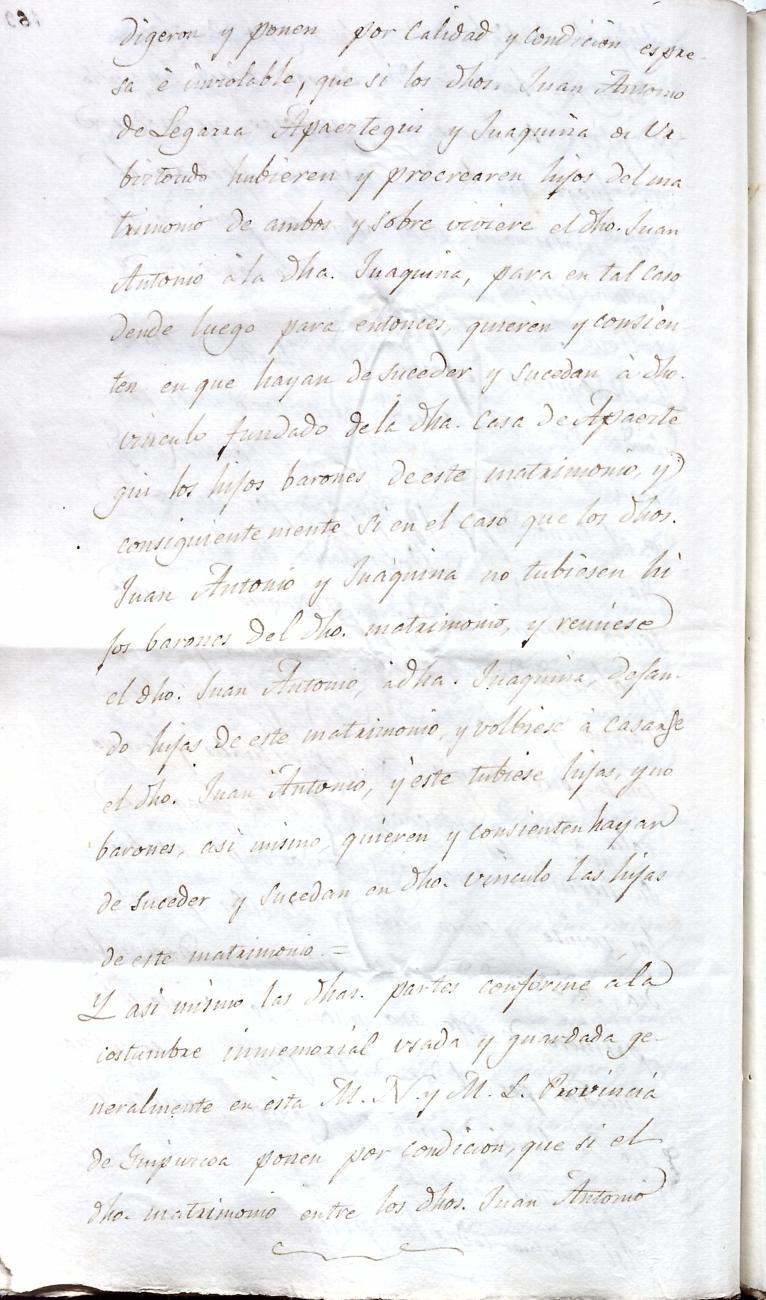 digeron y ponen por calidad y condicion espre-
sa è inviolable, que si los dhos. Juan Antonio
de Legarra Apaeztegui y Juaquina de Ur-
biztondo hubieren y procrearen hijos del ma
trimonio de ambos y sobre viviere el dho. Juan
Antonio à la dha. Juaquina, para en tal caso
dende luego para entonces, quieren y consien
ten en que hayan de suceder y sucedan à dho.
vinculo fundado de la dha. casa de Apaezte
gui los hijos barones de este matrimonio, y
consiguientemente si en el caso que los dhos.
Juan Antonio y Juaquina no tubiesen hi
jos barones del dho. matrimonio, y
el dho. Juan Antonio, à dha. Juaquina, dejan-
do hijas de este matrimonio, y volbiese à casarse
el dho. Juan Antonio, y èste tubiese hijas, y no
barones, asi mismo, quieren y consienten hayan
de suceder y sucedan en dho. vinculo las hijas
de este matrimonio =
Y asi mismo las dhas. partes conforme à la
costumbre inmemorial usada y guardada ge-
neralmente en èsta M. N. y M. L. Provincia
de Guipuzcoa ponen por condicion, que si el
dho. matrimonio entre los dhos. Juan Antonio